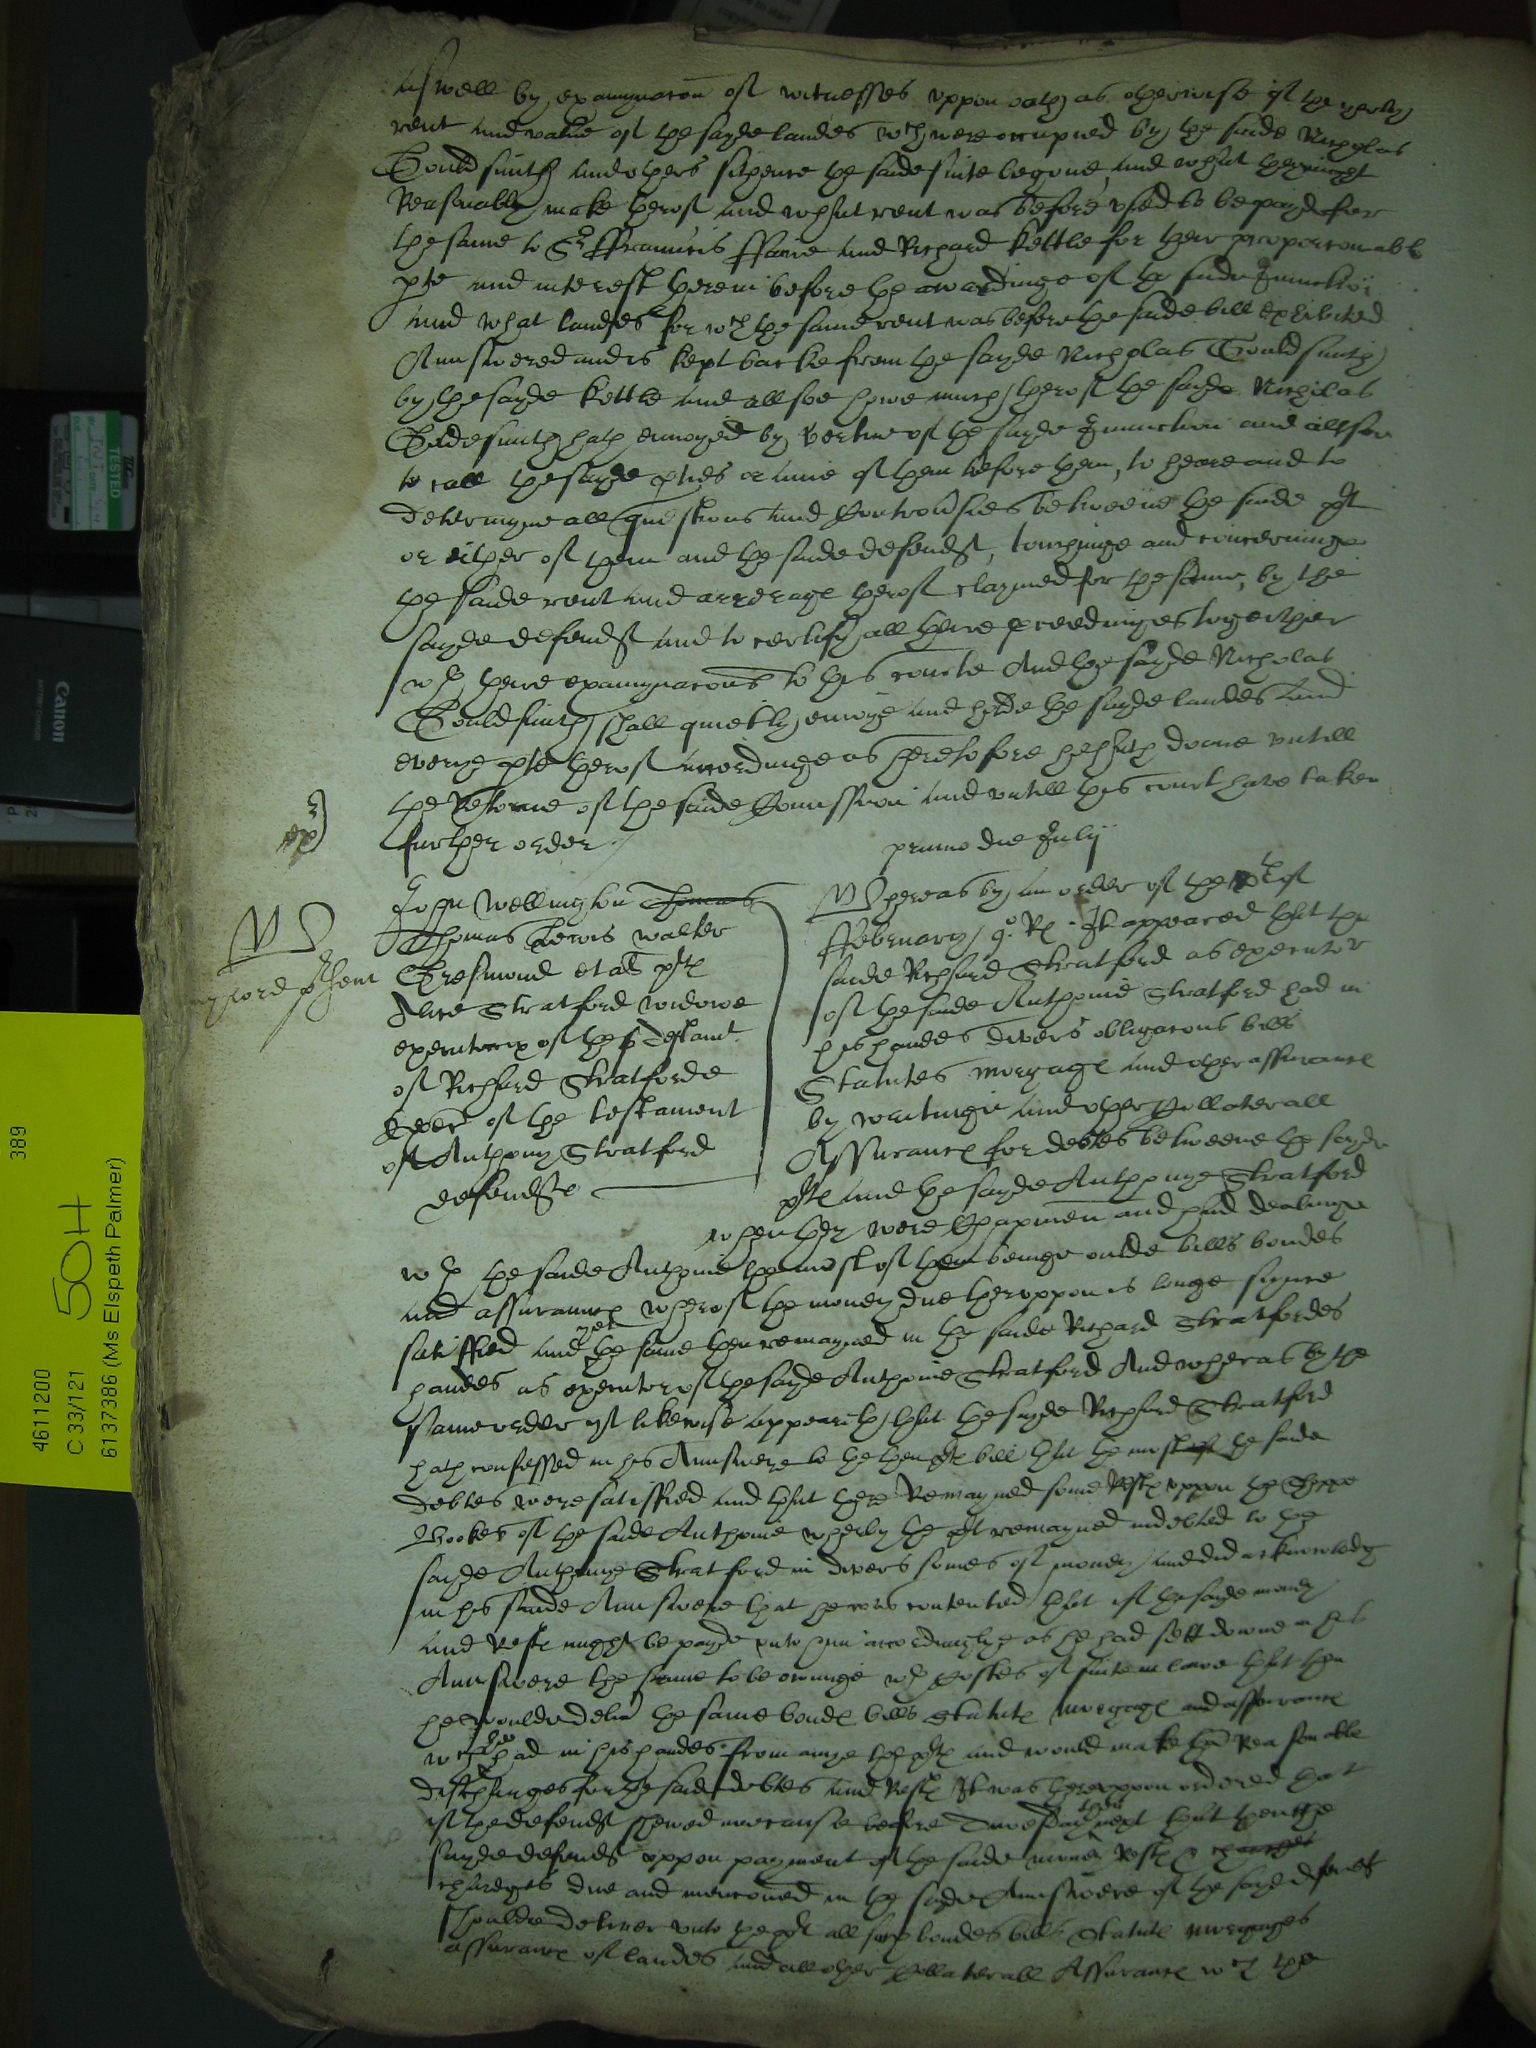 aswell by examynacon of witnesses uppon oath as otherwise of the yerly
rent and value of the sayde landes wch were occupied by the saide Nicholas
Gouldsmith and others sithence the saide suite begone, and what they might
Reasonably make therof and what rent was before used to be payde for
the same to Sr Frauncis and Richard Kettle for their proporconable
pte and interest therein before the awardinge of the saide Iniunction
and what landes for wch the same rent was before the saide bill exhibited
Aunswered and is kept backe from the sayde Nicholas Gouldsmith
by the sayde Kettle and allsoe howe much therof the sayde Nicholas
Goldesmith hath enioyed by vertue of the sayde Iniunction and allsoe
to call the sayde pties or anie of them before them, to heare and to
determyne all questions and Controversies betweene the saide plt
or either of them and the saide defendt, touchinge and concerninge
the saide rent and arrerage therof claymed for the same, by the
sayde defendt and to certify all theire proceedinges together
wth theire examynacons to this courte And the sayde Nicholas
Gouldsmith shall quietly enioye and holde the sayde landes and
everye pte therof accordinge as heretofore he hath doone untill
the Retorne of the saide Comission and untill this court have taken
further order
exr
primo die Julij
John Wellington Thomas
Thomas Lewis Walter
Gresmond et al plts
Alice Stratford widowe
executrix of the testamt
of Richard Stratforde
Exer of the testament
of Anthony Stratford
defendte
Whereas by an order of the of
February It appeared that the
saide Richard Stratford as executor
of the saide Anthonie Stratford had in
his handes divers obligacons bills
Statutes morgage and other assurance
by writinge and other Collaterall
Assurance for debtes betweene the sayde
plts and the sayde Anthonye Stratford
when they were Chapmen and had dealinge
wth the saide Anthonie the most of them beinge oulde bills bondes
and assurance wherof the money due theruppon is longe since
satisfied and yet the same then remayned in the saide Richard Stratfordes
handes as executor of the sayde Anthonie Stratford And wheras by the
same order yt likewise appeareth that the sayde Richard Stratford
hath confessed in his Aunswere to the then plts bill that the most of the saide
debtes were satisfied and that there Remayned some Rests uppon the Shoppe
Bookes of the saide Anthonie wherby the plts remayned indebted to the
sayde Anthonye Stratford in divers somes of money and did acknowledg
in his saide Aunswere that he was contented that if the sayde money
and Rests might be payde unto him accordinglye as he had sett downe in his
Aunswere the same to be owinge wth Costes of suite in lawe that then
he woulde deliver the same bonds bills Statuts morgags and assurance
wch he had in his handes from anye the plts and would make them Reasonable
discharges for the saide debtes and Rests It was thereuppon ordered that
if the defendt shewed noe cause before twesday then next that then the
sayde defendt uppon payment of the saide money Rests & charges
chardges due and mencioned in the sayde Aunswere of the sayd defendt
shoulde deliver unto the plts all such bondes bills Statuts morgages
assurance of landes and all other Collaterall Assurance wch the
TESTED
Canon
4611200 389
C 33/121 50H
6137386 (Ms Elspeth Palmer)